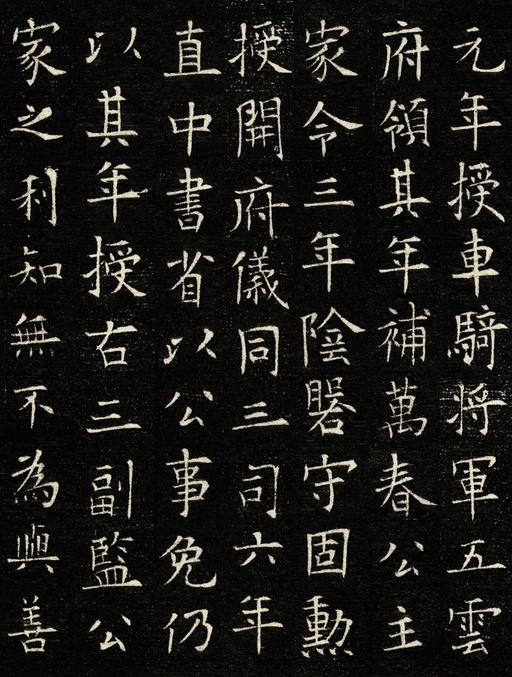 元年授車騎将軍五雲
府領其年補萬春公主
家令三年陰嵠守固勲
授開府儀同三司六年
直中書省以公事免仍
以其年授右三副監公
家之利知無不為興善